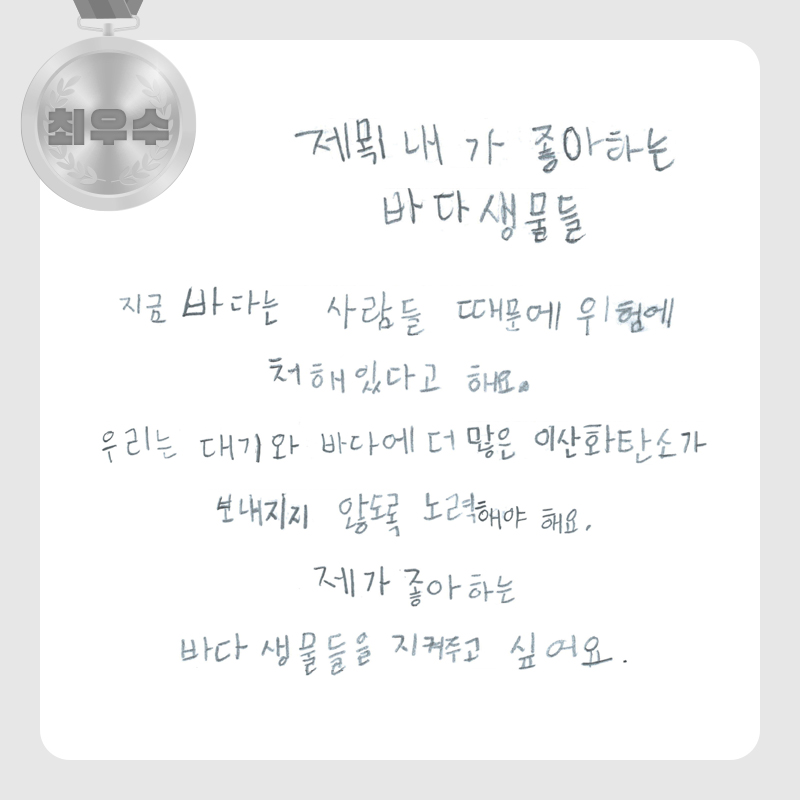 최우수
제목 내가 좋아하는
바다생물들
지금 바다는 사람들 때문에 위험에
처해있다고 해요.
우리는 대기와 바다에 더 많은 이산화탄소가
보내지지 않도록 노력해야 해요.
제가 좋아하는
바다 생물들을 지켜주고 싶어요.